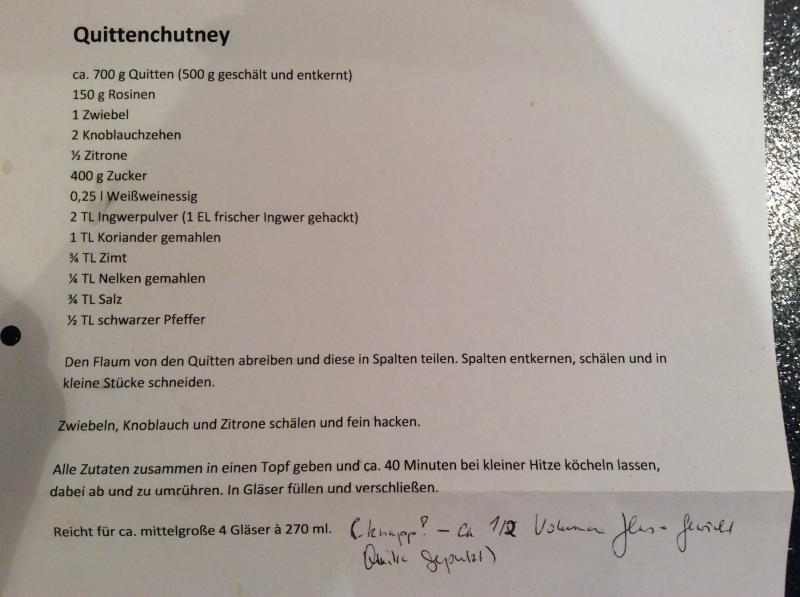 Quittenchutney
ca. 700 g Quitten (500 g geschält und entkernt)
150 g Rosinen
1 Zwiebel
2 Knoblauchzehen
½ Zitrone
400 g Zucker
0,25 l Weißweinessig
2 TL Ingwerpulver (1 EL frischer Ingwer gehackt)
1 TL Koriander gemahlen
¾ TL Zimt
¼ TL Nelken gemahlen
¾ TL Salz
½ TL schwarzer Pfeffer
Den Flaum von den Quitten abreiben und diese in Spalten teilen. Spalten entkernen, schälen und in
kleine Stücke schneiden.
Zwiebeln, Knoblauch und Zitrone schälen und fein hacken.
Alle Zutaten zusammen in einen Topf geben und ca. 40 Minuten bei kleiner Hitze köcheln lassen,
dabei ab und zu umrühren. In Gläser füllen und verschließen.
Reicht für ca. mittelgroße 4 Gläser à 270 ml. (knapp? – ca 1/2 Volumen Glas = Gewicht
Quitte geputzt)